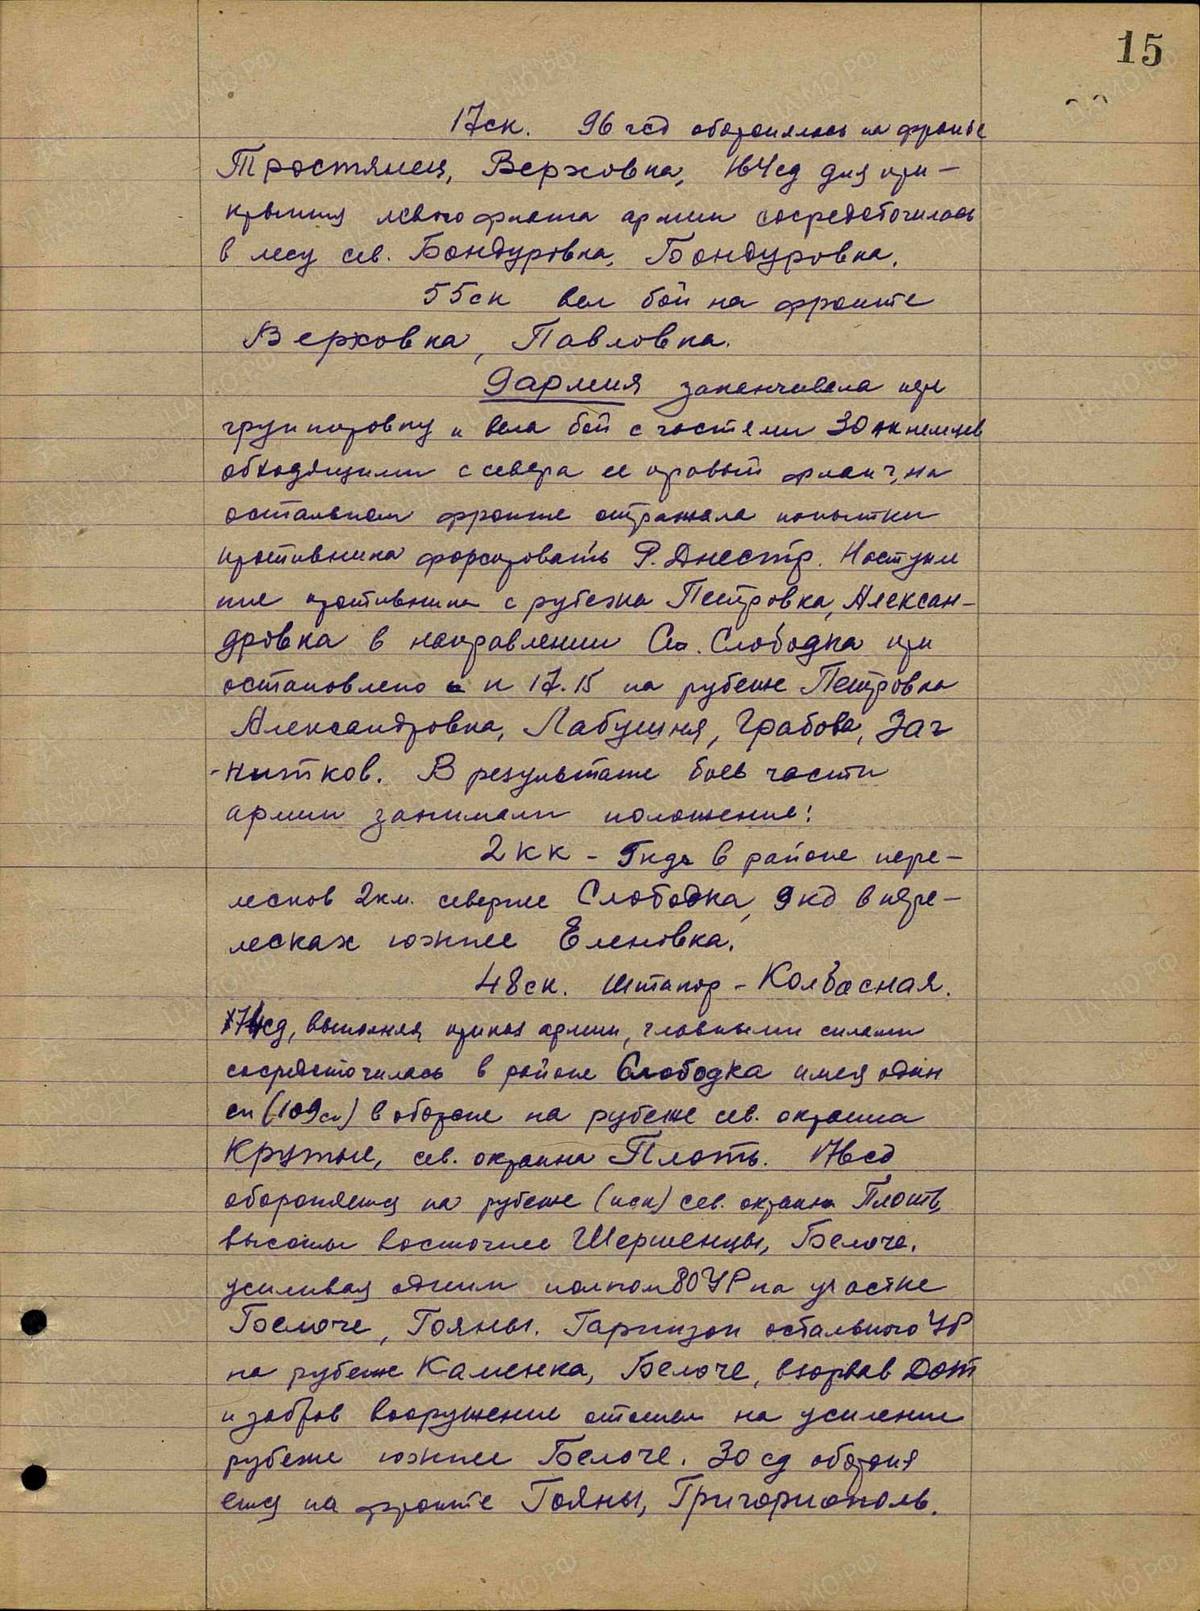 15
17ск. 96 гсд оборонялась на фронте
Тростянец, Верховка, 164сд для при-
крытия левого фланга армии сосредоточилась
в лесу сев. Бондуровка, Бондуровка.
55ск вел бой на фронте
Верховка, Павловка.
9 армия заканчивала пере
группировку и вела бой с частями 30 ак немцев
обходящими с севера ее правый фланг, на
остальном фронте отражала попытки
противника форсировать р. Днестр. Наступле
ние противника с рубежа Петровка, Алексан-
дровка в направлении Ст. Слободка при
остановлено к 17.15 на рубеже Петровка
Александровка, Лабушня, Грабово, Заг
-нитков. В результате боев части
армии занимали положение:
2 КК - 5кд в районе пере-
лесков 2км. севернее Слободка, 9 кд в пере-
лесках южнее Еленовка.
48ск. Штакор - Колбасная.
74сд, выполняя приказ армии, главными силами
сосредоточилась в районе Слободка имея один
сп (109сп) в обороне на рубеже сев. окраина
Крутые, сев. окраина Плоть. 176сд
обороняется на рубеже (иск) сев. окраина Плоть,
высоты восточнее Шершенцы, Белочи.
усиливая одним полком 80 УР на участке
Белоче, Гояны. Гарнизон остального УР
на рубеже Каменка, Белоче, взорвав Дот
и забрав вооружение отошел на усиление
рубежа южнее Белоче. 30 сд обороня
ется на фронте Гояны, Григориополь.